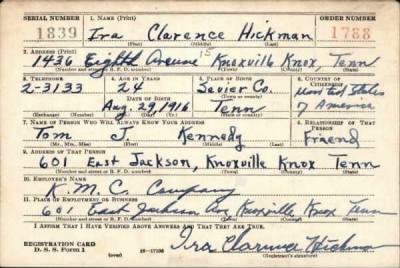 SERIAL NUMBER 1. NAME (Print) ORDER NUMBER
1839 Ira Clarence Hickman 1788
(First) (Middle) (Last)
2. ADDRESS (Print)
1436 Eighth Avenue Knoxville Knox Tenn
(Number and street or R. F. D. number) (Town) (County) (State)
3. TELEPHONE 4. AGE IN YEARS 5. PLACE OF BIRTH 6. COUNTRY OF CITIZENSHIP
2-3133 24 Sevier Co. United States
DATE OF BIRTH (Town or county)
Aug. 29, 1916 Tenn of America
(Exchange) (Number) (Mo.) (Day) (Yr.) (State or country)
7. NAME OF PERSON WHO WILL ALWAYS KNOW YOUR ADDRESS 8. RELATIONSHIP OF THAT PERSON
Tom J. Kennedy Friend
(Mr., Mrs., Miss) (First) (Middle) (Last)
9. ADDRESS OF THAT PERSON
601 East Jackson, Knoxville Knox Tenn
(Number and street or R. F. D. number) (Town) (County) (State)
10. EMPLOYER'S NAME
K. M. C. Company
11. PLACE OF EMPLOYMENT OR BUSINESS
601 East Jackson Ave Knoxville Knox Tenn
(Number and street or R. F. D. number) (Town) (County) (State)
I AFFIRM THAT I HAVE VERIFIED ABOVE ANSWERS AND THAT THEY ARE TRUE.
REGISTRATION CARD
D. S. S. Form 1 (over) Ira Clarence Hickman
(Registrant's signature)